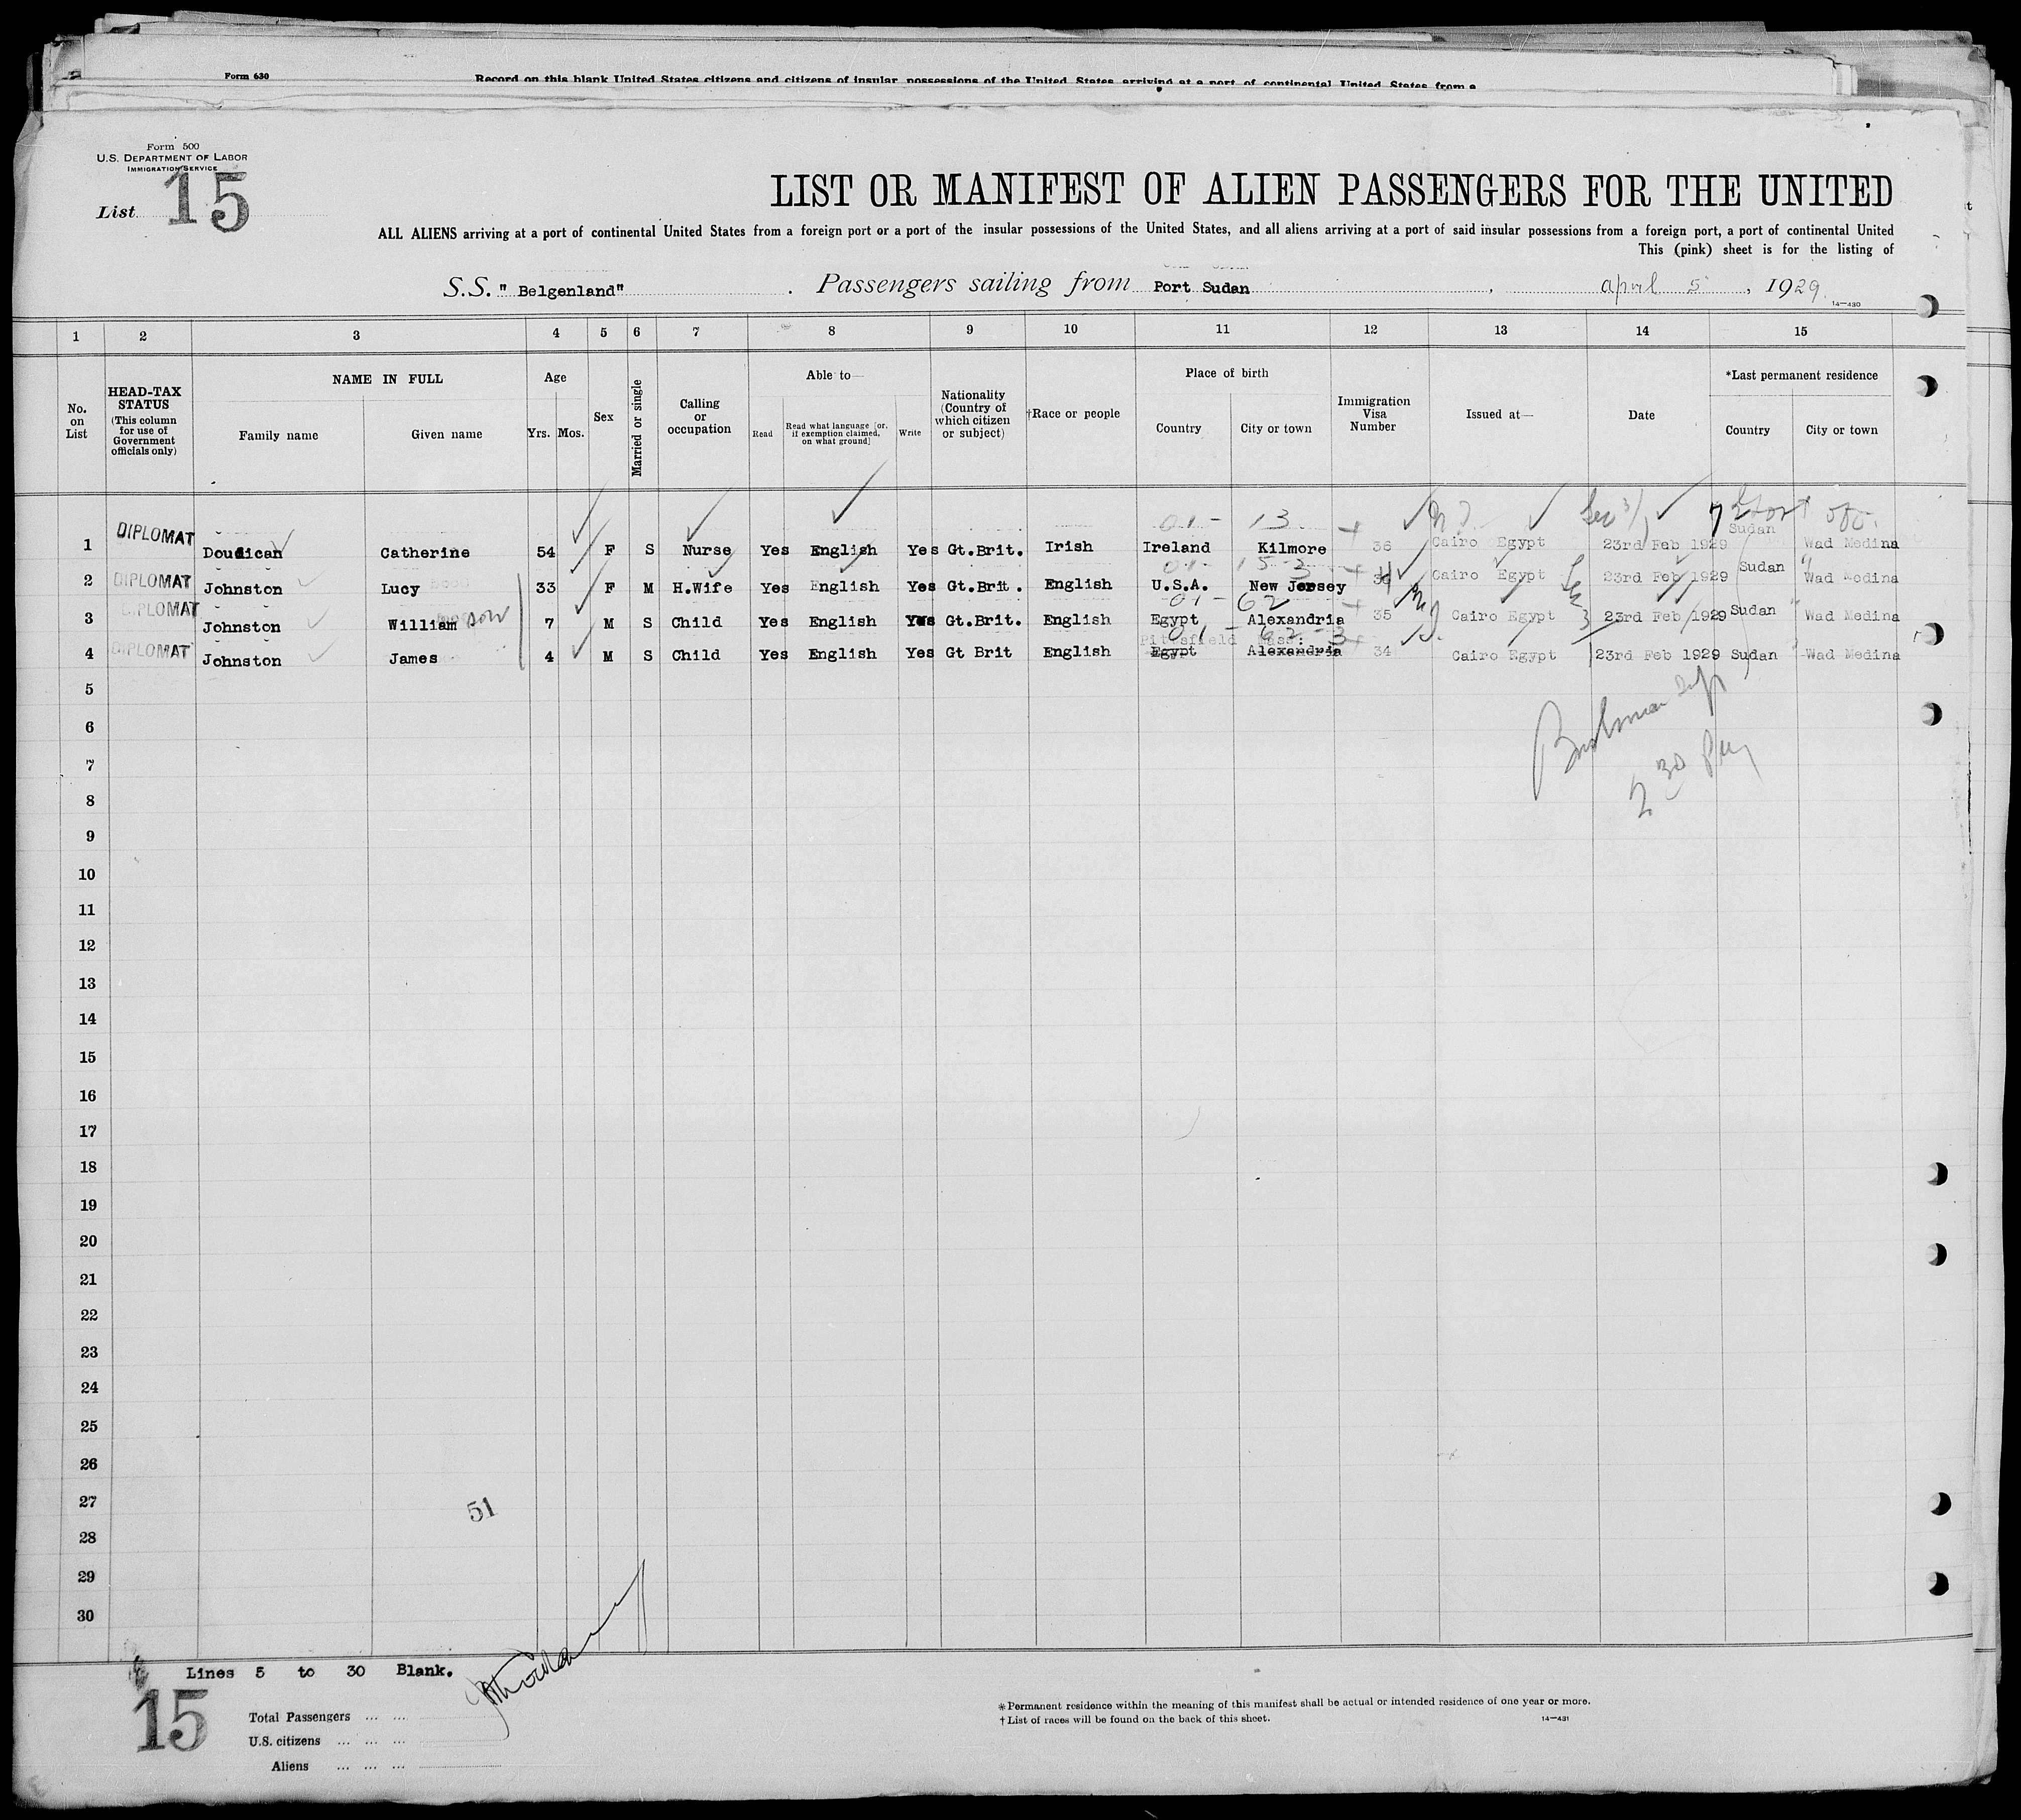 Form 630 Record on this blank United States citizens and citizens of insular possessions of the United States arriving at a port of continental United States from a
Form 500
U.S. DEPARTMENT OF LABOR
IMMIGRATION SERVICE
List 15
LIST OR MANIFEST OF ALIEN PASSENGERS FOR THE UNITED
ALL ALIENS arriving at a port of continental United States from a foreign port or a port of the insular possessions of the United States, and all aliens arriving at a port of said insular possessions from a foreign port, a port of continental United
This (pink) sheet is for the listing of
S.S. " Belgenland" . Passengers sailing from Port Sudan , april 5 , 1929
14—430
1 2 3 4 5 6 7 8 9 10 11 12 13 14 15
No. on List
HEAD-TAX STATUS (This column for use of Government officials only)
NAME IN FULL
Family name Given name
Age
Yrs. Mos.
Sex
Married or single
Calling or occupation
Able to—
Read Read what language [or, if exemption claimed, on what ground] Write
Nationality (Country of which citizen or subject)
†Race or people
Place of birth
Country City or town
Immigration Visa Number
Issued at—
Date
*Last permanent residence
Country City or town
01- 13
1 DIPLOMAT Doudican Catherine 54 F S Nurse Yes English Yes Gt.Brit. Irish Ireland Kilmore 36 Cairo Egypt 23rd Feb 1929 Sudan Wad Medina
2 DIPLOMAT Johnston Lucy 33 F M H.Wife Yes English Yes Gt.Brit. English U.S.A. New Jersey Cairo Egypt 23rd Feb 1929 Sudan Wad Medina
01- 62
3 DIPLOMAT Johnston William son 7 M S Child Yes English Yes Gt.Brit. English Egypt Alexandria 35 Cairo Egypt 23rd Feb 1929 Sudan Wad Medina
Pittsfield Mass:
4 DIPLOMAT Johnston James 4 M S Child Yes English Yes Gt Brit English Egypt Alexandria 34 Cairo Egypt 23rd Feb 1929 Sudan Wad Medina
5
6
7
2 30
8
9
10
11
12
13
14
15
16
17
18
19
20
21
22
23
24
25
26
27
51
28
29
30
Lines 5 to 30 Blank.
15
Total Passengers ... ...
U.S. citizens ... ... ...
Aliens ... ... ...
*Permanent residence within the meaning of this manifest shall be actual or intended residence of one year or more.
†List of races will be found on the back of this sheet.
14—431